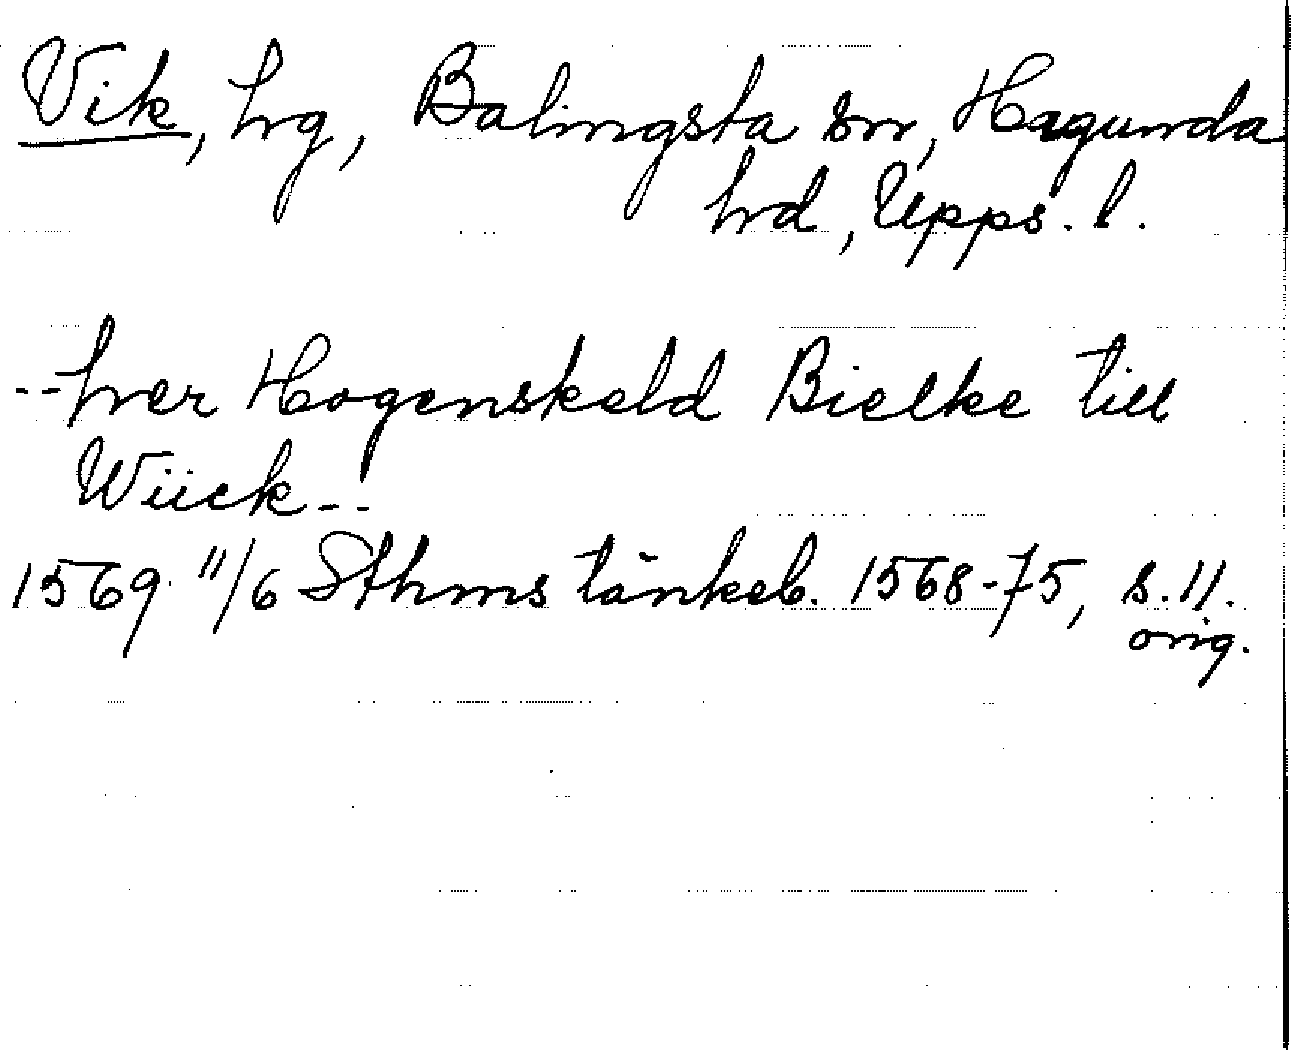 Vik, hrg, Balingsta sn, Hagunda
hrd, Upps. l.
--her Hogenskeld Bielke till
Wiick--
1569 11/6 Sthms tänkeb. 1568-75, s. 11.
orig.